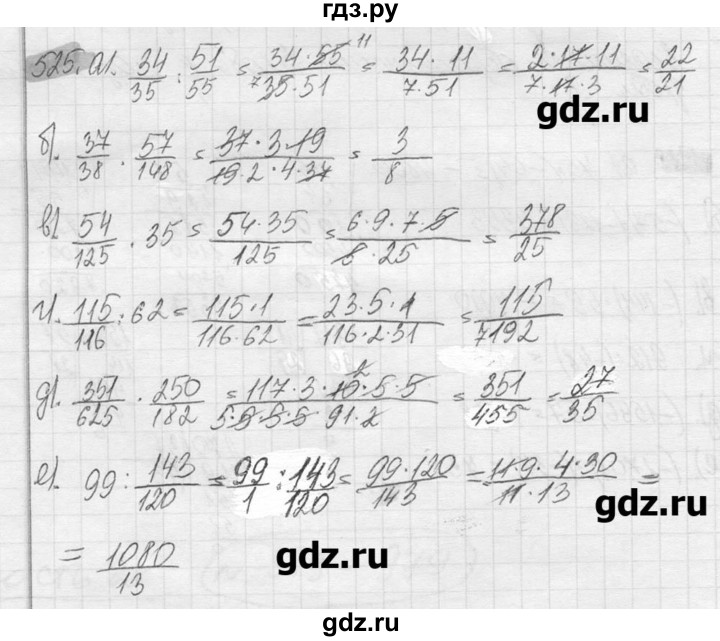 гдз.ру
525. а). 34/35 : 51/55 = 34·55 11/7 35·51 = 34·11/7·51 = 2·17·11/7·17·3 = 22/21
gdz.ru
б). 37/38 · 57/148 = 37·3·19/19·2·4·37 = 3/8
в). 54/125 · 35 = 54·35/125 = 6·9·7·5/5·25 = 378/25
г). 115/116 : 62 = 115·1/116·62 = 23·5·1/116·2·31 = 115/7192
д). 351/625 · 250/182 = 117·3·10·5·5/5·5·5·5·91·2 = 351/455 = 27/35
е). 99 : 143/120 = 99/1 : 143/120 = 99·120/143 = 11·9·4·30/11·13 =
gdz.ru
= 1080/13
gdz.ru
gdz.ru